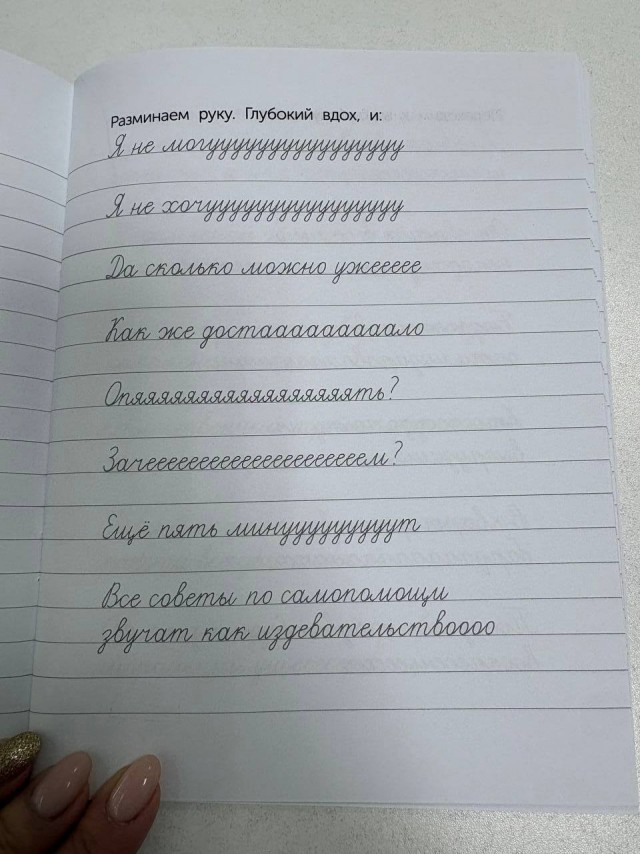 Разминаем руку. Глубокий вдох, и:
Я не могуууууууууууууууууу
Я не хочууууууууууууууууу
Да сколько можно ужеееее
Как же достаааааааааало
Опяяяяяяяяяяяяяяяяяяять?
Зачеееееееееееееееееееем?
Ещё пять минуууууууууут
Все советы по самопомощи
звучат как издевательствоооо